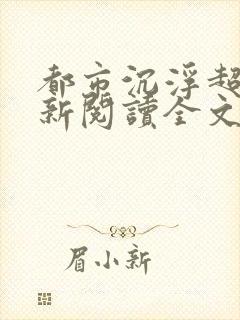 都市沉浮超
新閱讀全文
眉小新